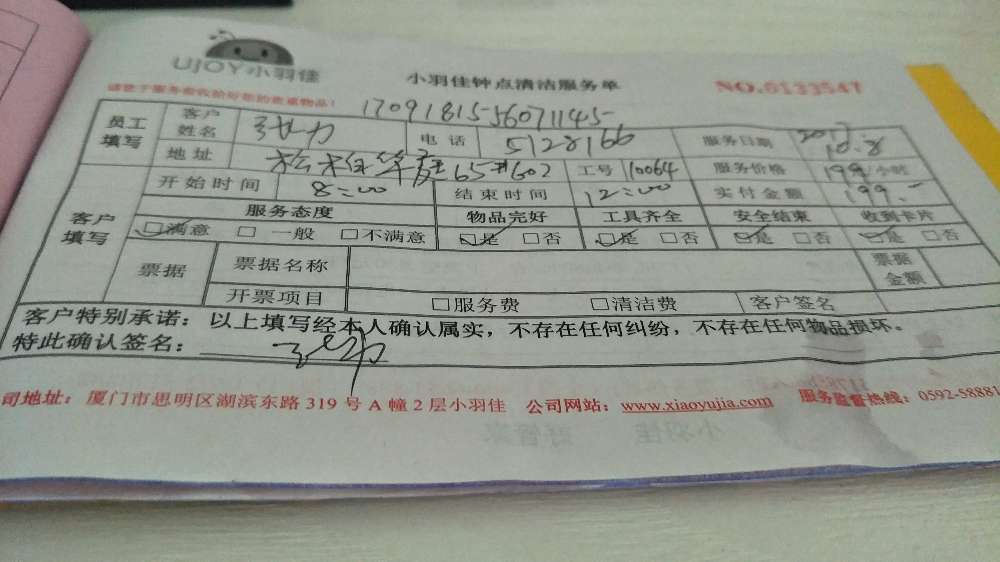 UJOY小羽佳
小羽佳钟点清洁服务单 NO.0133547
请您于服务前收拾好您的贵重物品!
1709181556071145
员工填写 客户姓名 张力 电话 5128166 服务日期 2017.10.8
地址 65#602 工号 10064 服务价格 199/小时
客户填写 开始时间 8:00 结束时间 12:00 实付金额 199.-
服务态度 物品完好 工具齐全 安全结束 收到卡片
☑满意 □一般 □不满意 ☑是 □否 ☑是 □否 ☑是 □否 ☑是 □否
票据 票据名称 票据金额
开票项目 □服务费 □清洁费 客户签名
客户特别承诺：以上填写经本人确认属实，不存在任何纠纷，不存在任何物品损坏。
特此确认签名：
司地址：厦门市思明区湖滨东路 319 号 A 幢 2 层小羽佳 公司网站：www.xiaoyujia.com 服务监督热线：0592-58881